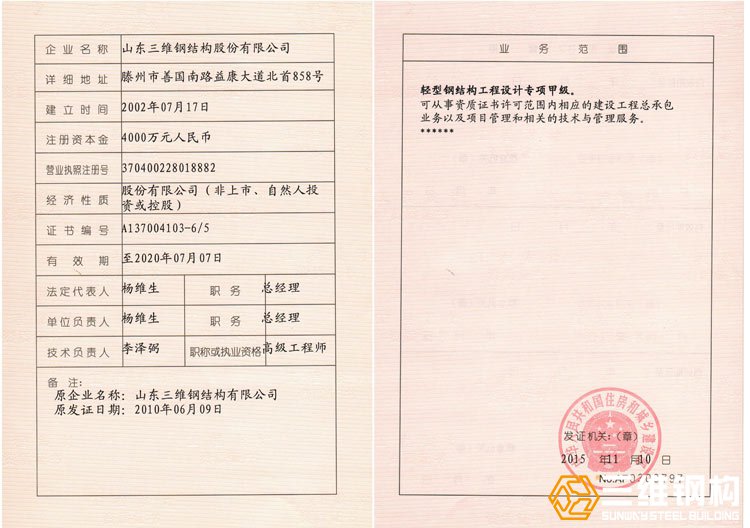 企业名称 山东三维钢结构股份有限公司
详细地址 滕州市善国南路益康大道北首858号
建立时间 2002年07月17日
注册资本金 4000万元人民币
营业执照注册号 370400228018882
经济性质 股份有限公司（非上市、自然人投
资或控股）
证书编号 A137004103-6/5
有效期 至2020年07月07日
法定代表人 杨维生 职务 总经理
单位负责人 杨维生 职务 总经理
技术负责人 李泽弼 职称或执业资格 高级工程师
备注：
原企业名称：山东三维钢结构有限公司
原发证日期：2010年06月09日
业务范围
轻型钢结构工程设计专项甲级。
可从事资质证书许可范围内相应的建设工程总承包
业务以及项目管理和相关的技术与管理服务。
******
发证机关：（章）
2015年11月10日
三维钢构
SUNWAY STEEL BUILDING